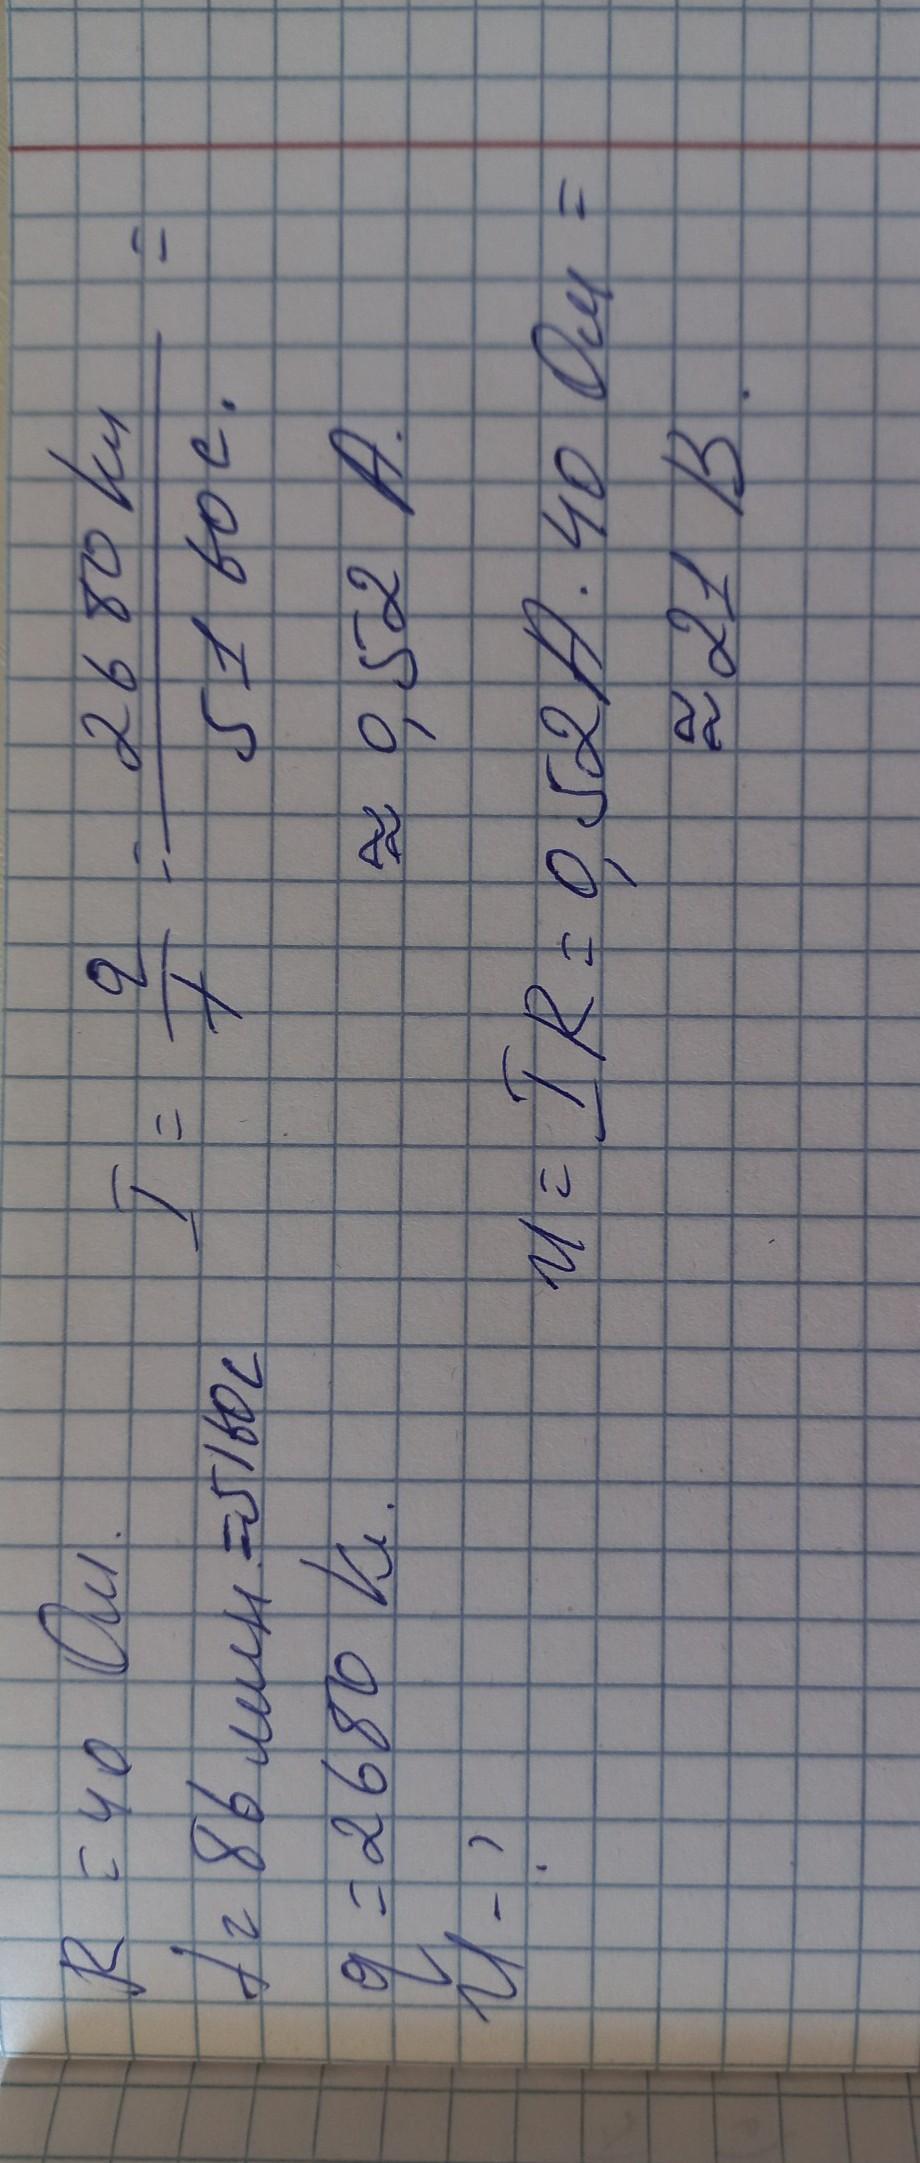 R = 40 Ом.
t = 86 мин. = 5160с
q = 2680 Кл.
U - ?
I = q/t = 2680 Кл / 5160 с. =
≈ 0,52 А.
U = IR = 0,52А · 40 Ом =
≈ 21 В.